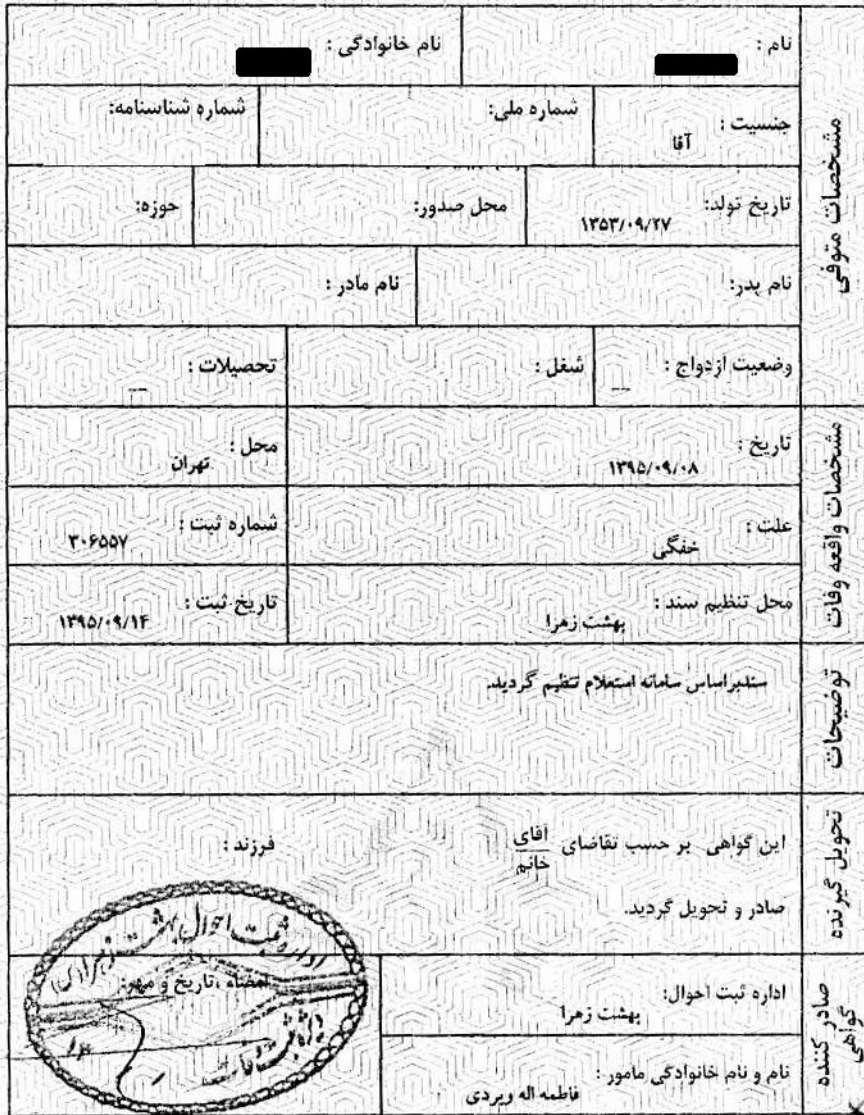 مشخصات متوفی
نام :
نام خانوادگی :
جنسیت : آقا
شماره ملی:
شماره شناسنامه:
تاریخ تولد: ۱۳۵۳/۰۹/۲۷
محل صدور:
حوزه:
نام پدر:
نام مادر :
وضعیت ازدواج : __
شغل :
تحصیلات : __
مشخصات واقعه وفات
تاریخ : ۱۳۹۵/۰۹/۰۸
محل : تهران
علت : خفگی
شماره ثبت : ۳۰۶۵۵۷
محل تنظیم سند : بهشت زهرا
تاریخ ثبت : ۱۳۹۵/۰۹/۱۴
توضیحات
سندبراساس سامانه استعلام تنظیم گردید.
تحویل گیرنده
این گواهی بر حسب تقاضای آقای
خانم
فرزند :
صادر و تحویل گردید.
صادر کننده
گواهی
اداره ثبت احوال: بهشت زهرا
امضاء ،تاریخ و مهر:
اداره ثبت احوال بهشت زهرا
نام و نام خانوادگی مامور : فاطمه اله ویردی